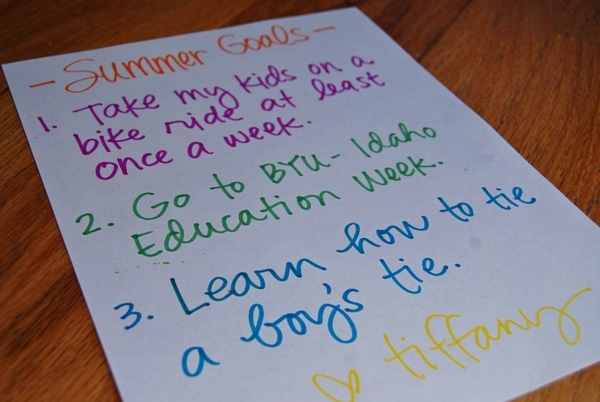 - Summer Goals -
1. Take my kids on a
bike ride at least
once a week.
2. Go to BYU-Idaho
Education Week.
3. Learn how to tie
a boy's tie.
♡ tiffany